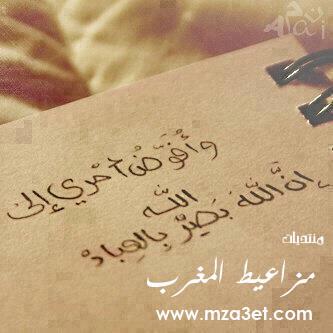 وأفوّض أمري إلى
الله
إنّ اللّه بصيرٌ بالعباد
منتديات
مزاعيط المغرب
www.mza3et.com